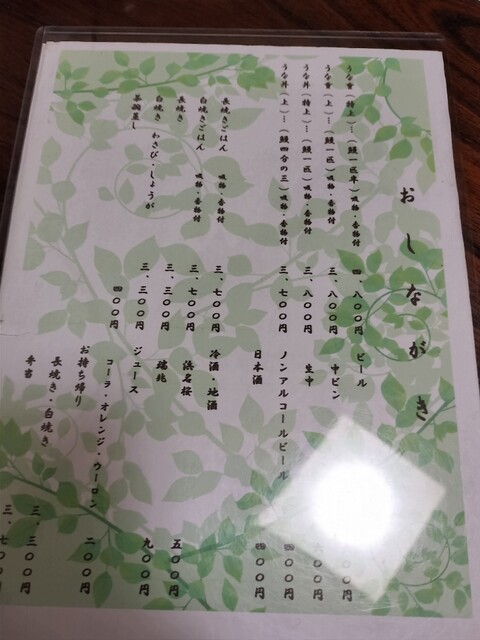 おしながき
うな重（特上）―（鰻一匹半）吸物・香物付 四、八〇〇円
うな重（上）―（鰻一匹）吸物・香物付 三、八〇〇円
うな丼（特上）―（鰻一匹）吸物・香物付 三、八〇〇円
うな丼（上）―（鰻四分の三）吸物・香物付 三、七〇〇円
長焼きごはん 吸物・香物付 三、七〇〇円
白焼きごはん 吸物・香物付 三、七〇〇円
長焼き 三、三〇〇円
白焼き わさび・しょうが、 三、三〇〇円
茶碗蒸し 四〇〇円
ビール
中ビン 〇〇円
生中 〇〇円
ノンアルコールビール 四〇〇円
日本酒 四〇〇円
冷酒・地酒
浜名桜 五〇〇円
瑞兆 九〇〇円
ジュース
コーラ・オレンジ・ウーロン 二〇〇円
お持ち帰り
長焼き・白焼き 三、三〇〇円
弁当 三、七〇〇円